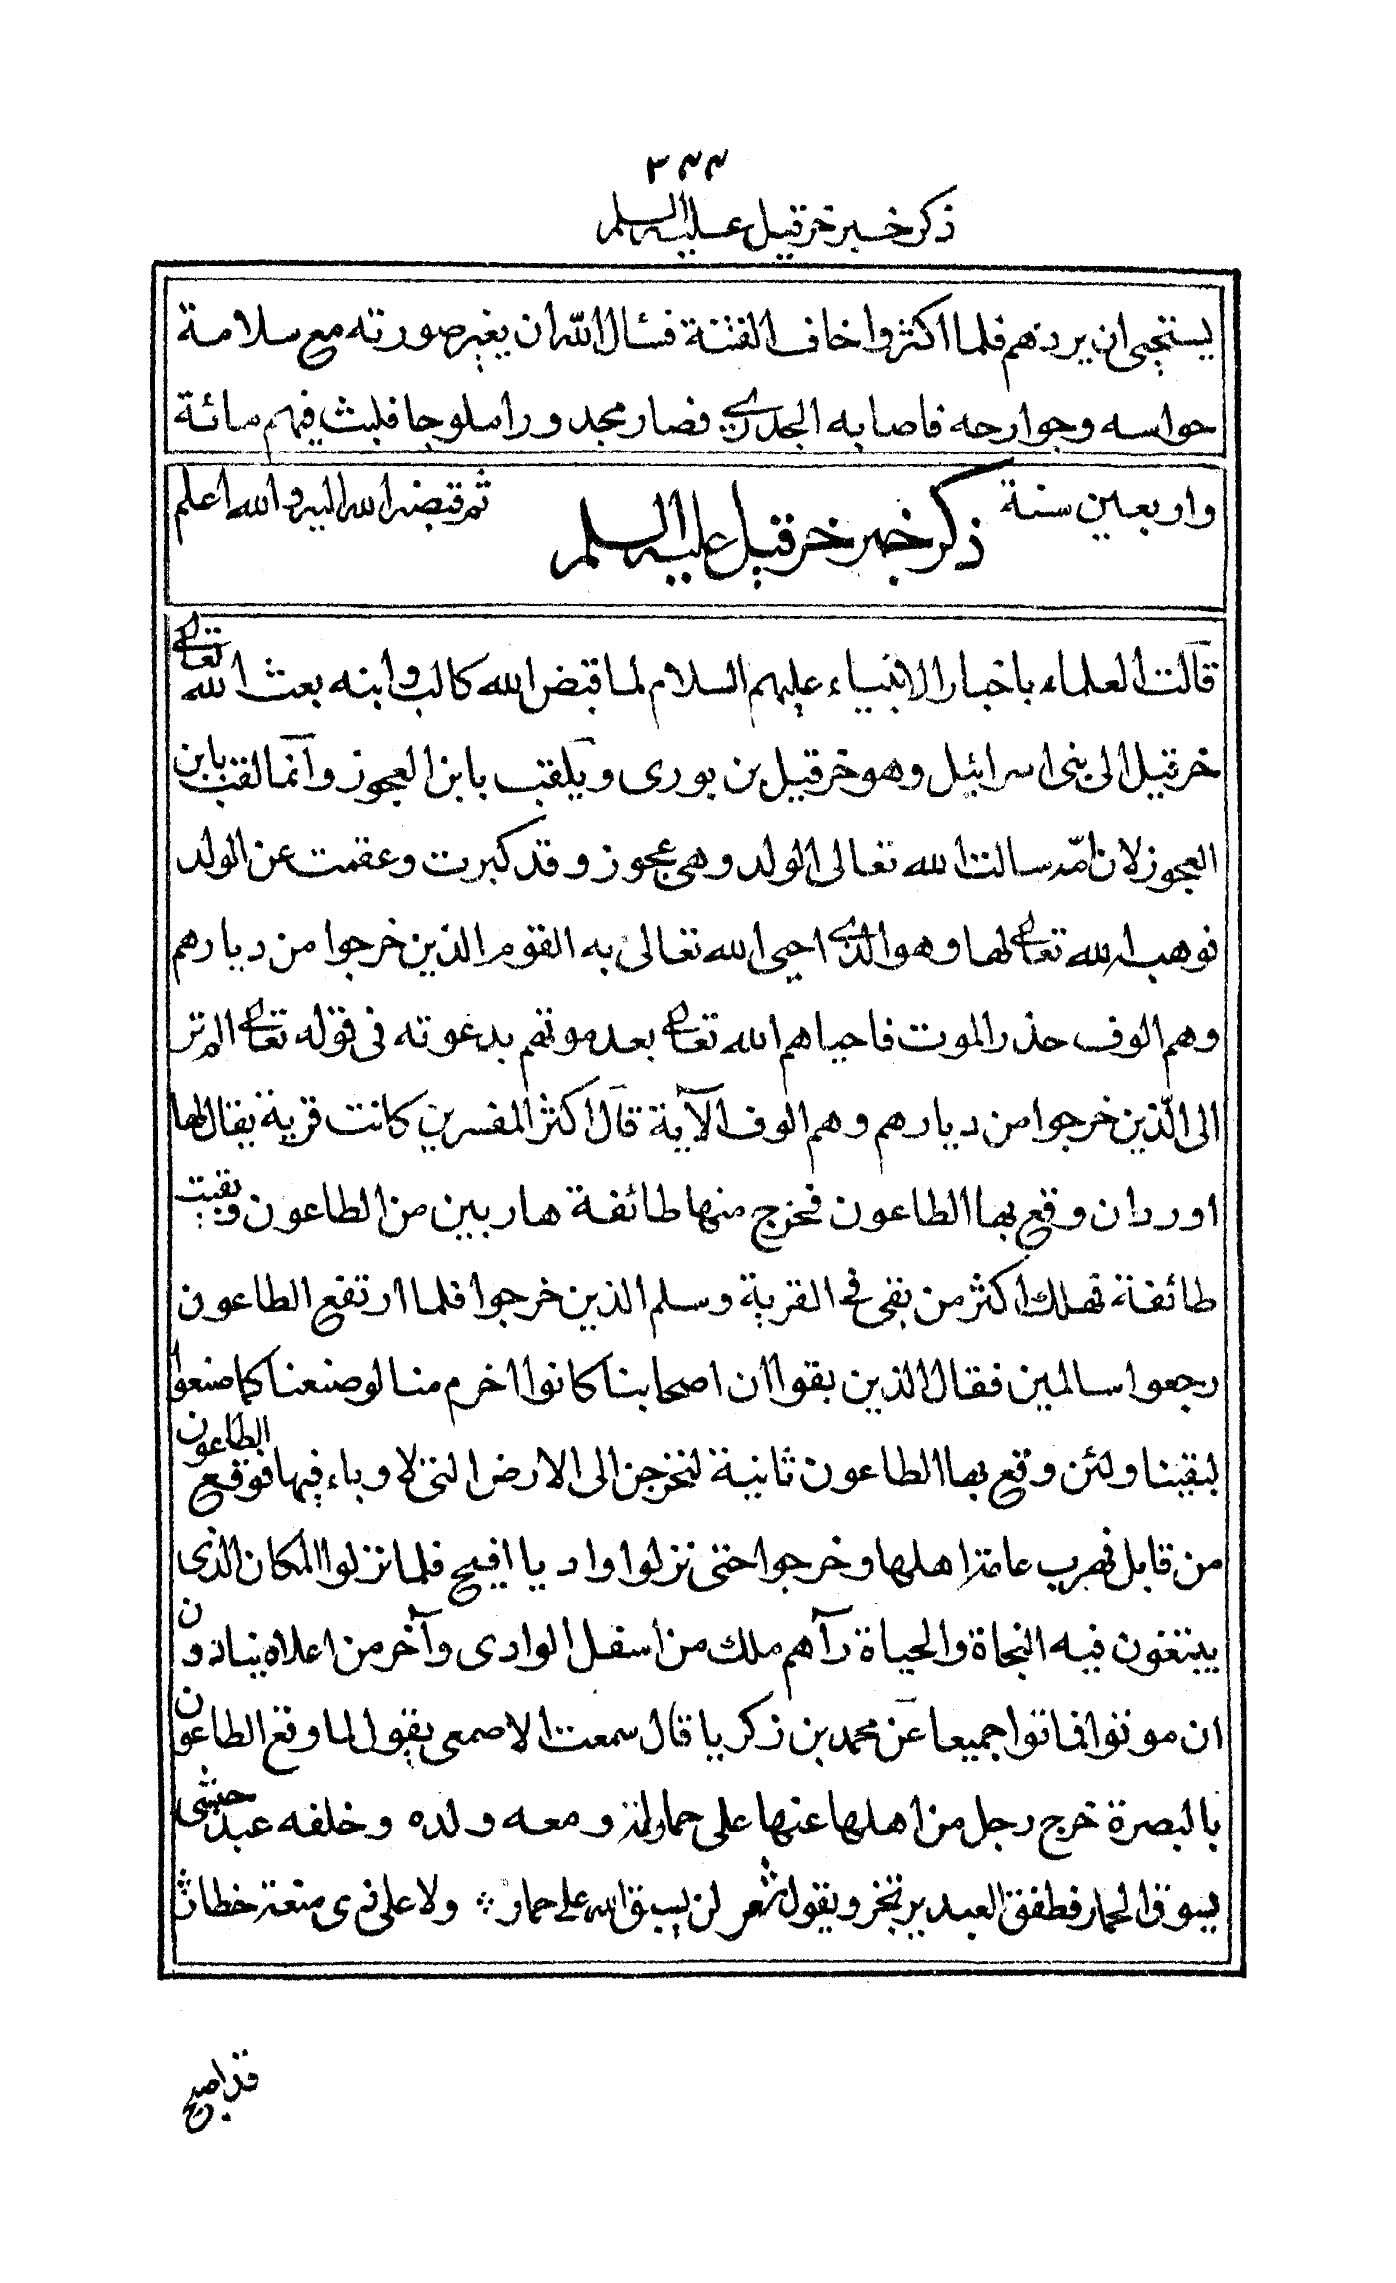 ٣٤٤
ذكر خبر خرقيل عليه السلم
يستحيى ان يردهم فلما اكثروا خاف الفتنة فسئال الله ان يغير صورته مع سلامة
حواسه وجوارحه فاصابه الجدرى فصار مجدورا ملوحا فلبث فيهم مائة
واربعين سنة ثم قبضه الله اليه والله اعلم
ذكر خبر خرقيل عليه السلم
قالت العلماء باخبار الانبياء عليهم السلام لما قبض الله كالب وابنه بعث الله تعالى
خرقيل الى بنى اسرائيل وهو خرقيل بن بورى ويلقب بابن العجوز وانما لقب بابن
العجوز لان امه سالت الله تعالى الولد وهى عجوز وقد كبرت وعقمت عن الولد
فوهبه الله تعالى لها وهو الذى احيى الله تعالى به القوم الذين خرجوا من ديارهم
وهم الوف حذر الموت فاحياهم الله تعالى بعد موتهم بدعوته فى قوله تعالى الم تر
الى الذين خرجوا من ديارهم وهم الوف الآية قال اكثر المفسرين كانت قرية يقال لها
اوردان وقع بها الطاعون فخرج منها طائفة هاربين من الطاعون وبقيت
طائفة فهلك اكثر من بقى فى القرية وسلم الذين خرجوا فلما ارتفع الطاعون
رجعوا سالمين فقال الذين بقوا ان اصحابنا كانوا اخرم منا لو صنعنا كما صنعوا
لبقينا ولئن وقع بها الطاعون ثانية لنخرجن الى الارض التى لا وباء فيها فوقع الطاعون
من قابل فهرب عامة اهلها وخرجوا حتى نزلوا واديا افيح فلما نزلوا المكان الذى
يبتغون فيه النجاة والحياة رآهم ملك من اسفل الوادى وآخر من اعلاه ينادون
ان موتوا فماتوا جميعا عن محمد بن زكريا قال سمعت الاصمعى يقول لما وقع الطاعون
بالبصرة خرج رجل من اهلها عنها على حمار له ومعه ولده وخلفه عبد حبشى
يسوق الحمار فطفق العبد يرتجز ويقول شعر لن يسبق الله على حمار ∴ ولا على ذى منعة خطار
قد اصبح